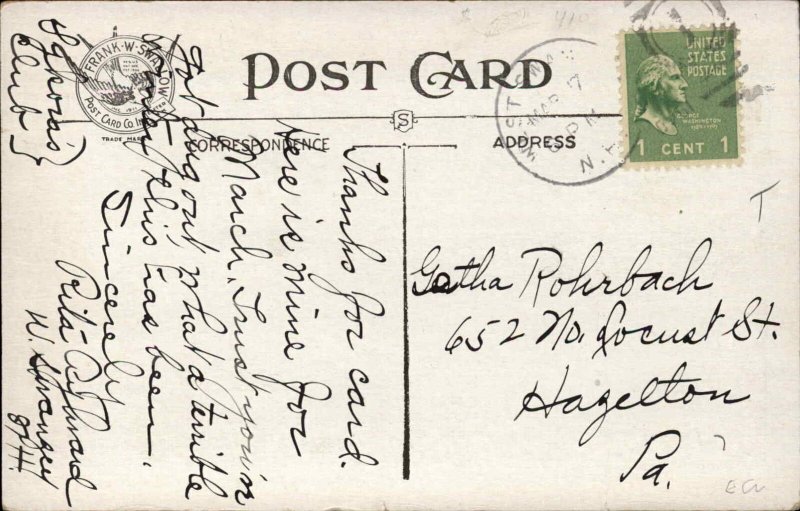 POST CARD
CORRESPONDENCE
ADDRESS
FRANK·W·SWALLOW
POST CARD CO. INC.
TRADE MARK
S
MAR 7
PM
N.H.
UNITED
STATES
POSTAGE
GEORGE
WASHINGTON
1 CENT 1
Thanks for card.
Here is mine for
March. Trust you're
got dug out, what a terrible
winter this has been.
Sincerely
Rita
W. Swanzey
N.H.
Club
Gatha Rohrbach
652 No. Locust St.
Hazelton
Pa.
T